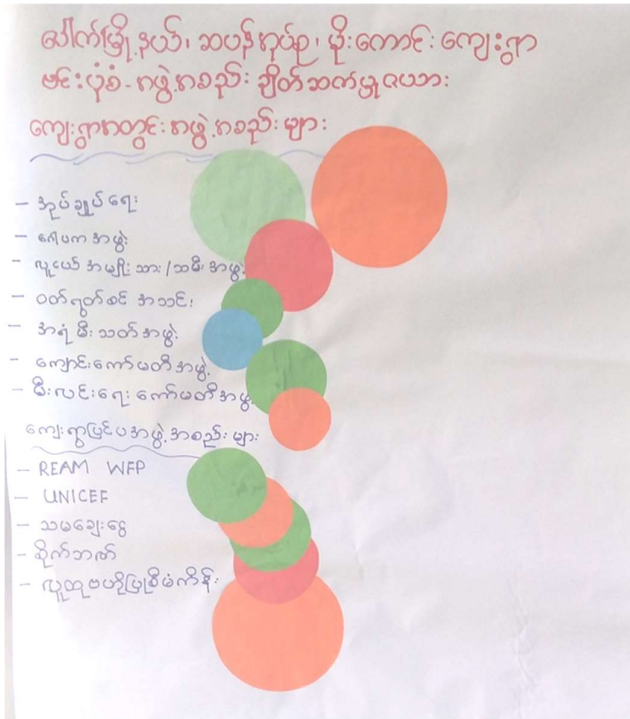 ပေါက်မြို့နယ်၊ ဆပန်အုပ်စု၊ မိုးကောင်းကျေးရွာ
ဗင်းပုံစံ - အဖွဲ့အစည်း ချိတ်ဆက်မှုဇယား
ကျေးရွာအတွင်း အဖွဲ့အစည်းများ
- အုပ်ချုပ်ရေး
- ဂေါပကအဖွဲ့
- လူငယ် အမျိုးသား/သမီး အဖွဲ့
- ဝတ်ရွတ်စဉ် အသင်း
- အရံမီးသတ်အဖွဲ့
- ကျောင်းကော်မတီအဖွဲ့
- မီးလင်းရေးကော်မတီအဖွဲ့
ကျေးရွာပြင်ပအဖွဲ့အစည်းများ
- REAM WFP
- UNICEF
- သမချေးငွေ
- စိုက်ဘဏ်
- လူထုဗဟိုပြုစီမံကိန်း